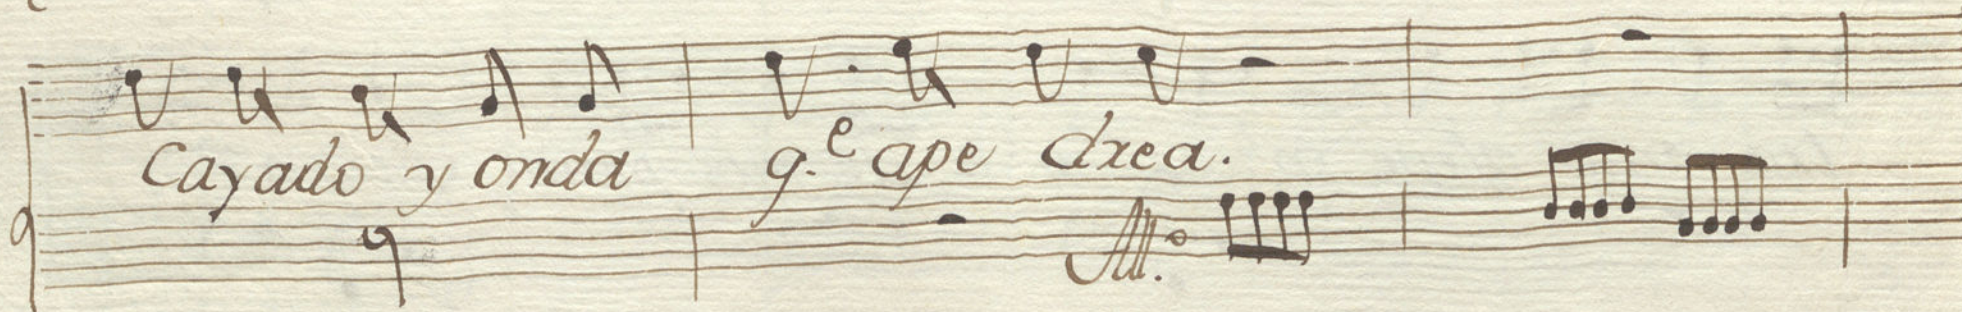 Cayado y onda q.e ape drea.
All.o